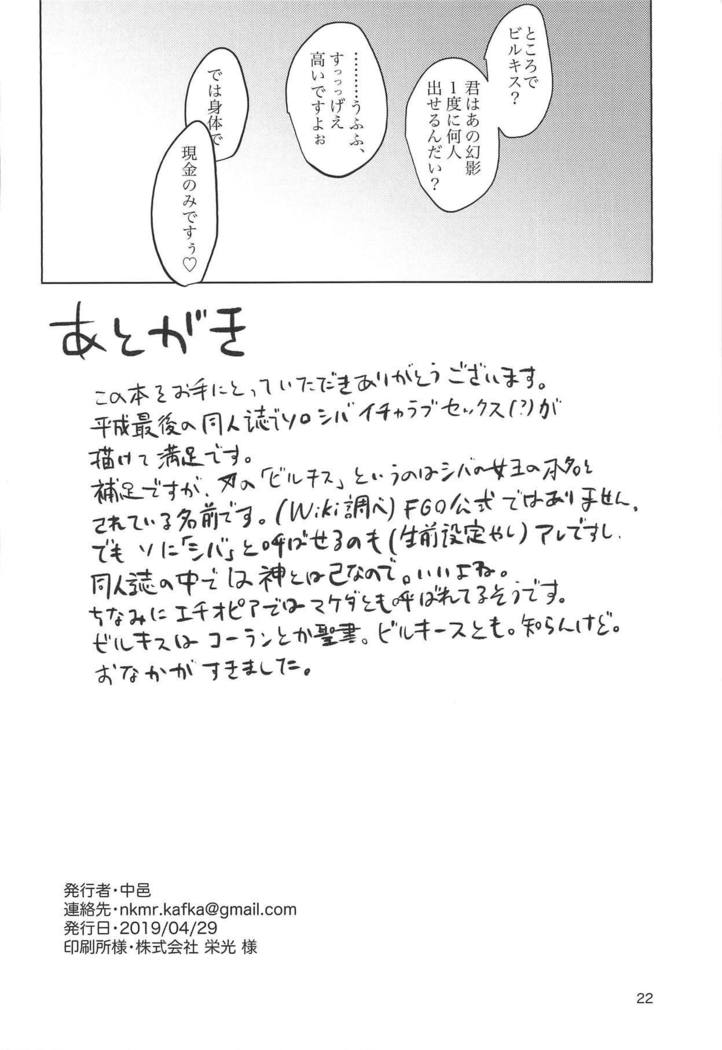 ところで
ビルキス?
君はあの幻影
1度に何人
出せるんだい?
………うふふ、
すっっっげえ
高いですよぉ
では身体で
現金のみですぅ♡
あとがき
この本をお手にとっていただきありがとうございます。
平成最後の同人誌でソロシバイチャラブセックス(?)が
描けて満足です。
補足ですが、〆の「ビルキス」というのはシバの女王の本名と
されている名前です。(Wiki調べ)FGO公式ではありません。
でもソに「シバ」と呼ばせるのも(生前設定やし)アレですし、
同人誌の中では神とは己なので。いいよね。
ちなみにエチオピアではマケダとも呼ばれてるそうです。
ビルキスはコーランとか聖書。ビルキースとも。知らんけど。
おなかがすきました。
発行者・中邑
連絡先・nkmr.kafka@gmail.com
発行日・2019/04/29
印刷所様・株式会社 栄光 様
22